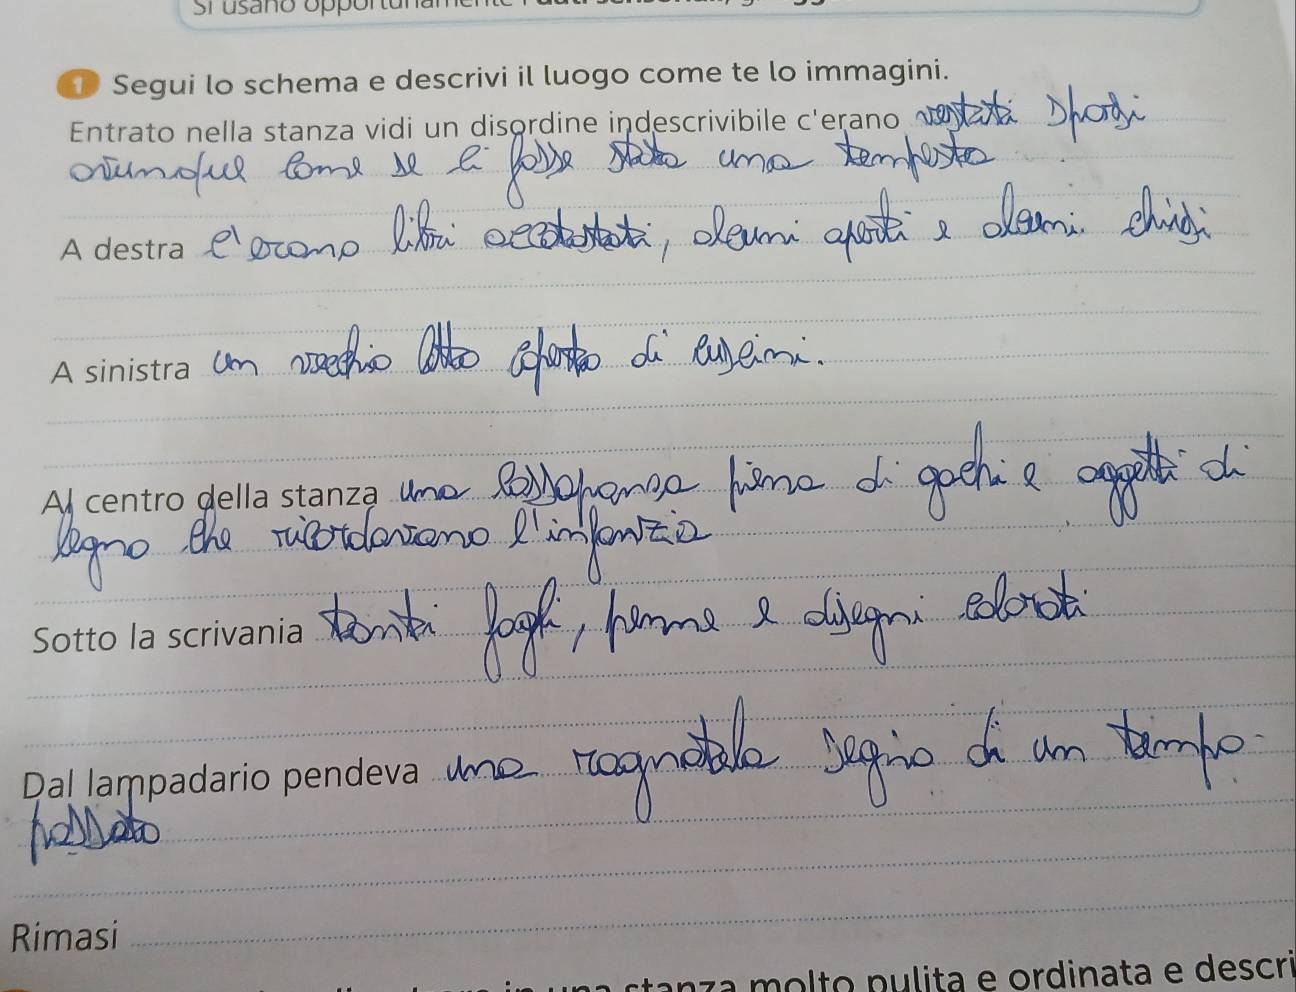 Si usano opportunamente
1 Segui lo schema e descrivi il luogo come te lo immagini.
Entrato nella stanza vidi un disordine indescrivibile c'erano vestiti sparsi
ovunque come se ci fosse stata una tempesta
A destra c'erano libri accatastati, alcuni aperti e alcuni chiusi
A sinistra un vecchio letto coperto di cuscini.
Al centro della stanza una cassapanca piena di giochi e oggetti di
legno che ricordavano l'infanzia
Sotto la scrivania tanti fogli, penne e disegni colorati
Dal lampadario pendeva una ragnatela segno di un tempo
passato
Rimasi
in una stanza molto pulita e ordinata e descri